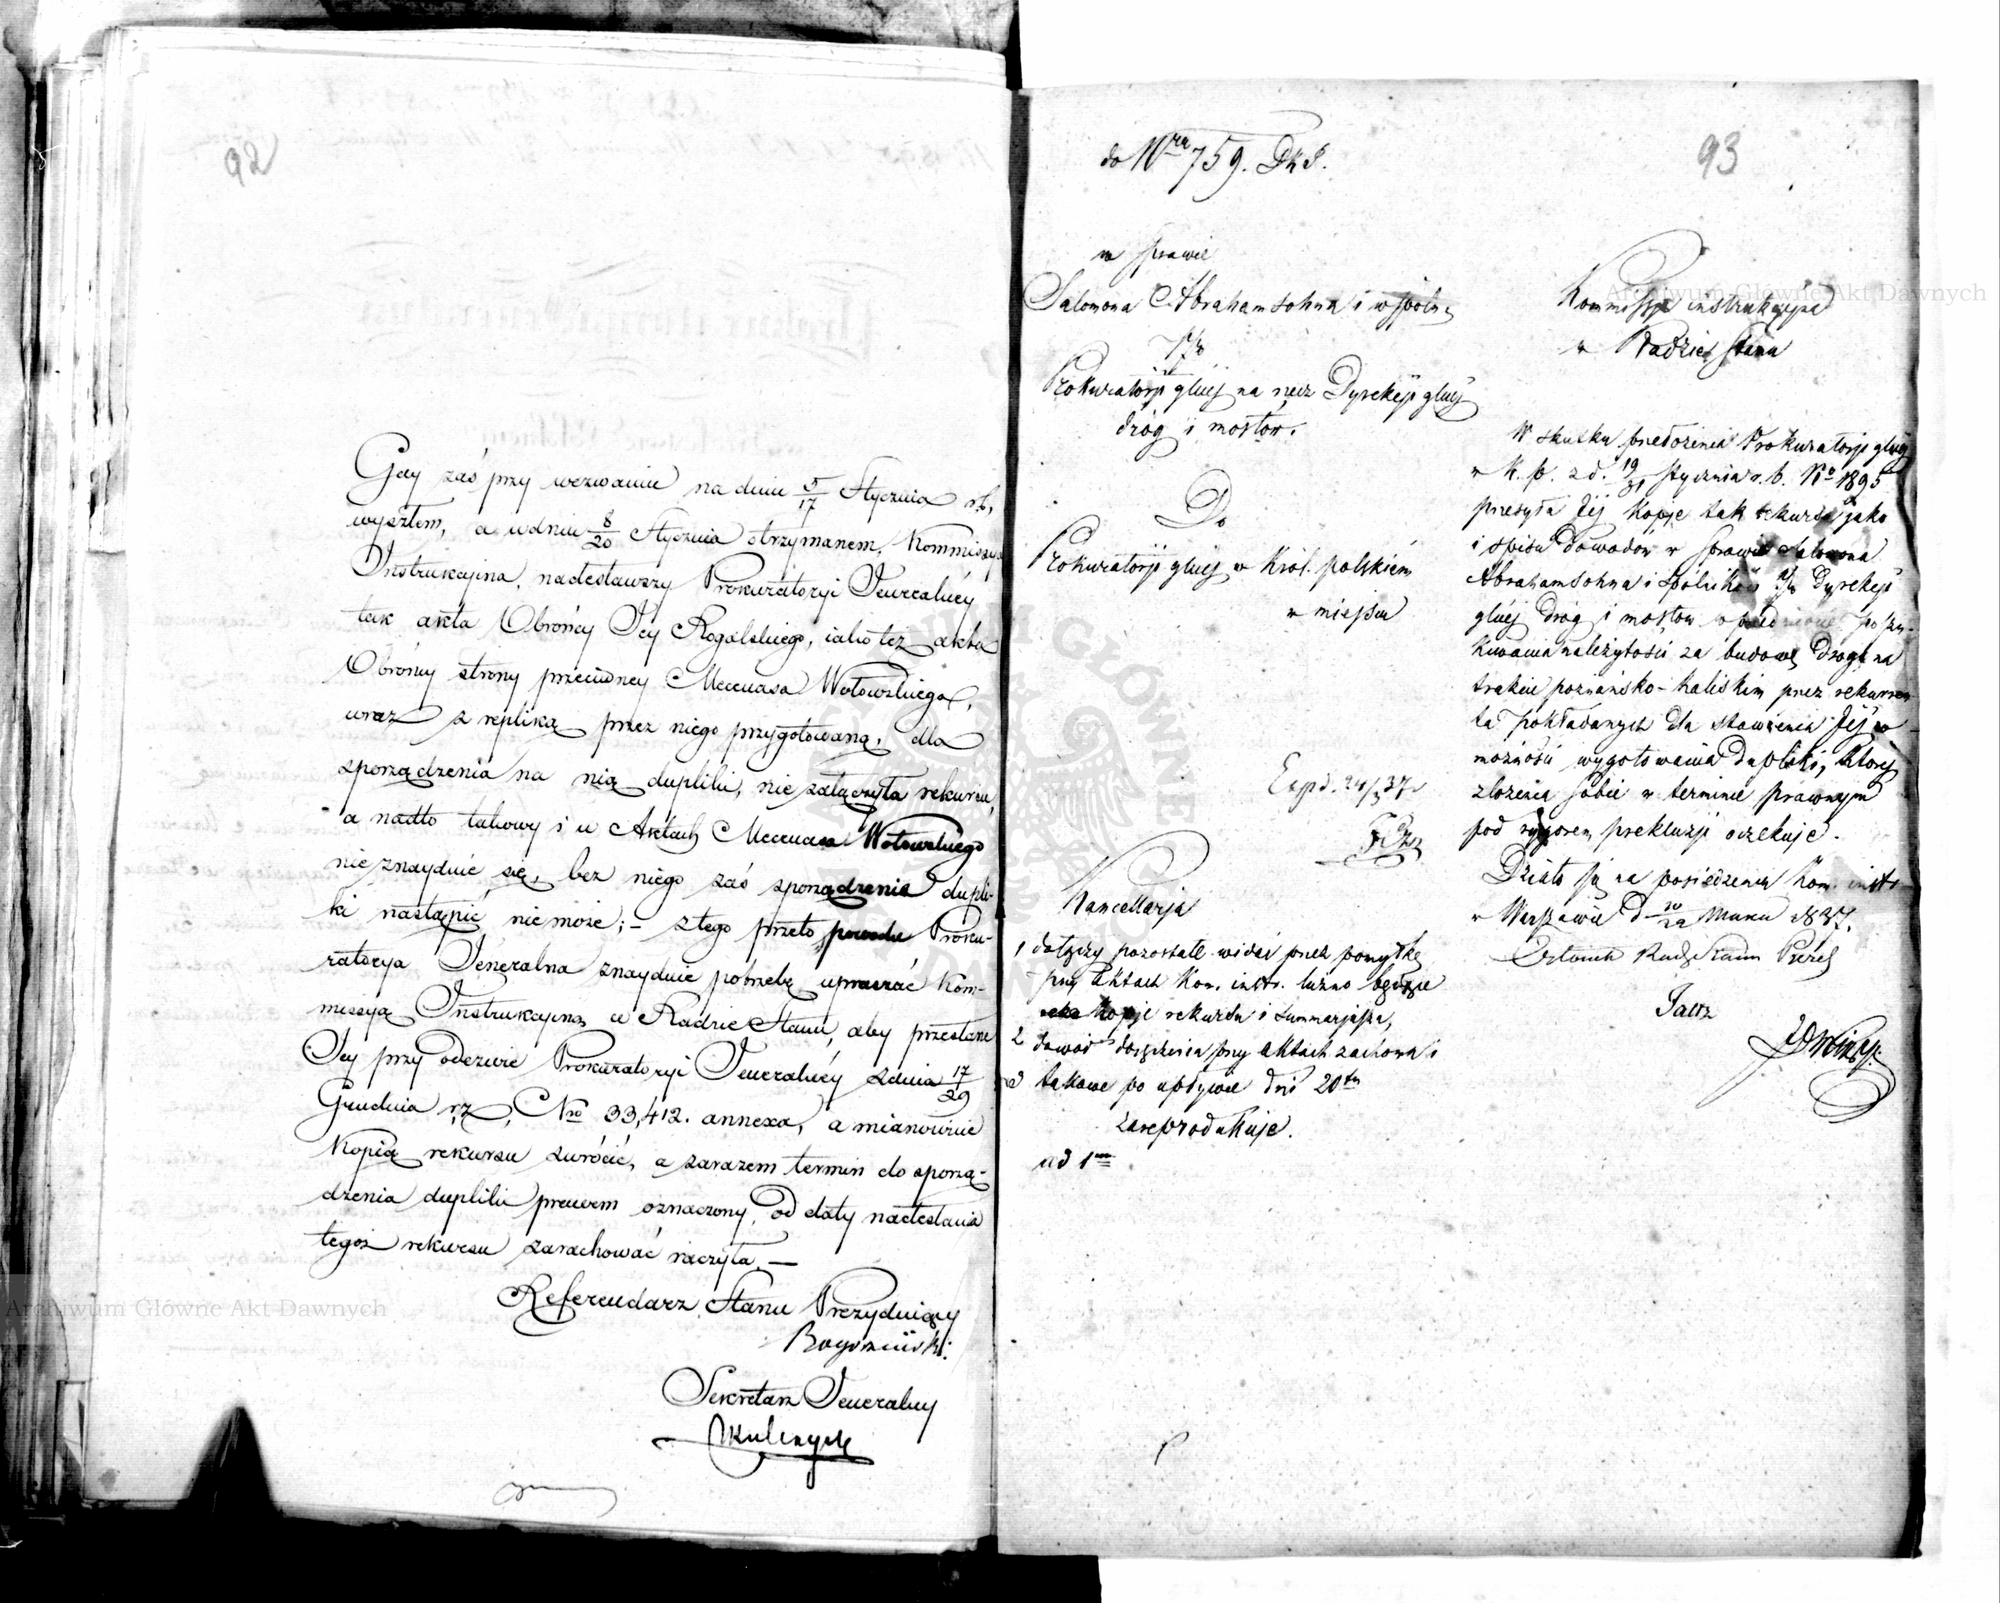 92
Gdy zaś przy wezwaniu na dniu 5/17 Stycznia rb,
wyszłem, a w dniu 8/20 Stycznia otrzymanem, Kommissya
Instrukcyina, nadesławszy Prokuratoryi Jeneralnéy
tak akta Obrońcy Jey Rogalskiego, iako też akta
Obrońcy strony przeciwney Mecenasa Wołowskiego,
wraz z repliką przez niego przygotowaną, dla
sporządzenia na nią dupliki, nie załączyła rekursu,
a nadto takowy i w Aktach Mecenasa Wołowskiego
nie znayduie się, bez niego zaś sporządzenie dupli-
ki nastąpić nie może; – z tego przeto powodu Proku-
ratorya Jeneralna znayduie potrzebę upraszać Kom-
missyą Instrukcyiną w Radzie Stanu, aby przesłane
Jey przy odezwie Prokuratoryi Jeneralnéy z dnia 17/29
Grudnia r.z. Nro 33,412. annexa, a mianowicie
Kopią rekursu zwrócić, a zarazem termin do sporzą-
dzenia dupliki prawem oznaczony, od daty nadesłania
tegoż rekursu zarachować raczyła. —
Referendarz Stanu Prezyduiący
Sekretarz Jeneralny
do Nra 759. DKS.
93
w sprawie
Salomona Abrahamsohna i wspóln.
Prokuratorji głnej na rzecz Dyrekcji głnej
dróg i mostów.
Do
Prokuratorji głnej w Król. polskiém
w miejscu
Expd. 24/3 37
Kancellarja
1 dołączy pozostałe widać przez pomyłkę
przy aktach Kom. instr. luźno będące
kopje rekursu i summarjusza,
2 dowód doręczenia przy aktach zachowa i
3 takowe po upływie dni 20tu
zareprodukuje.
ad 1m
Kommissja instrukcyjna
w Radzie Stanu
W skutku przedłożenia Prokuratorji głnej
w K. p. z d. 19/31 stycznia r. b. No 1895
przesyła Jéj kopje tak rekursu jako
i spisu dowodów w sprawie Salomona
Abrahamsohna i spólników Dyrekcji
głnéj dróg i mostów o przedmiocie poszu-
kiwania należytości za budowę drogi na
trakcie poznańsko-kaliskim przez rekurren-
ta pokładanych dla stawienia Jéj w
możności wygotowania dupliki, któréj
złożenia sobie w terminie prawnym
pod rygorem prekluzji oczekuje.
Działo się na posiedzeniu Kom. instr.
w Warszawie d 10/22 Marca 1837.
Członek Rady Stanu Prézs